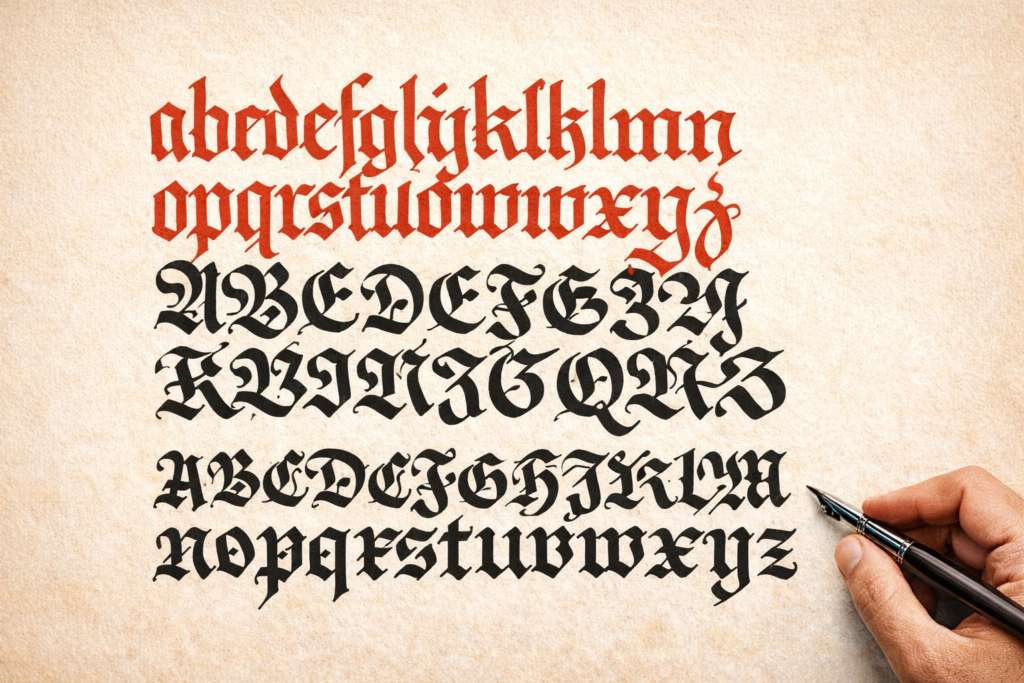 abedefglijklklmn
opqrstuówwwxyz
ABCDEFGZY
KVINZGQRZ
ABCDCFGHJKLM
nopqrstuvwxyz